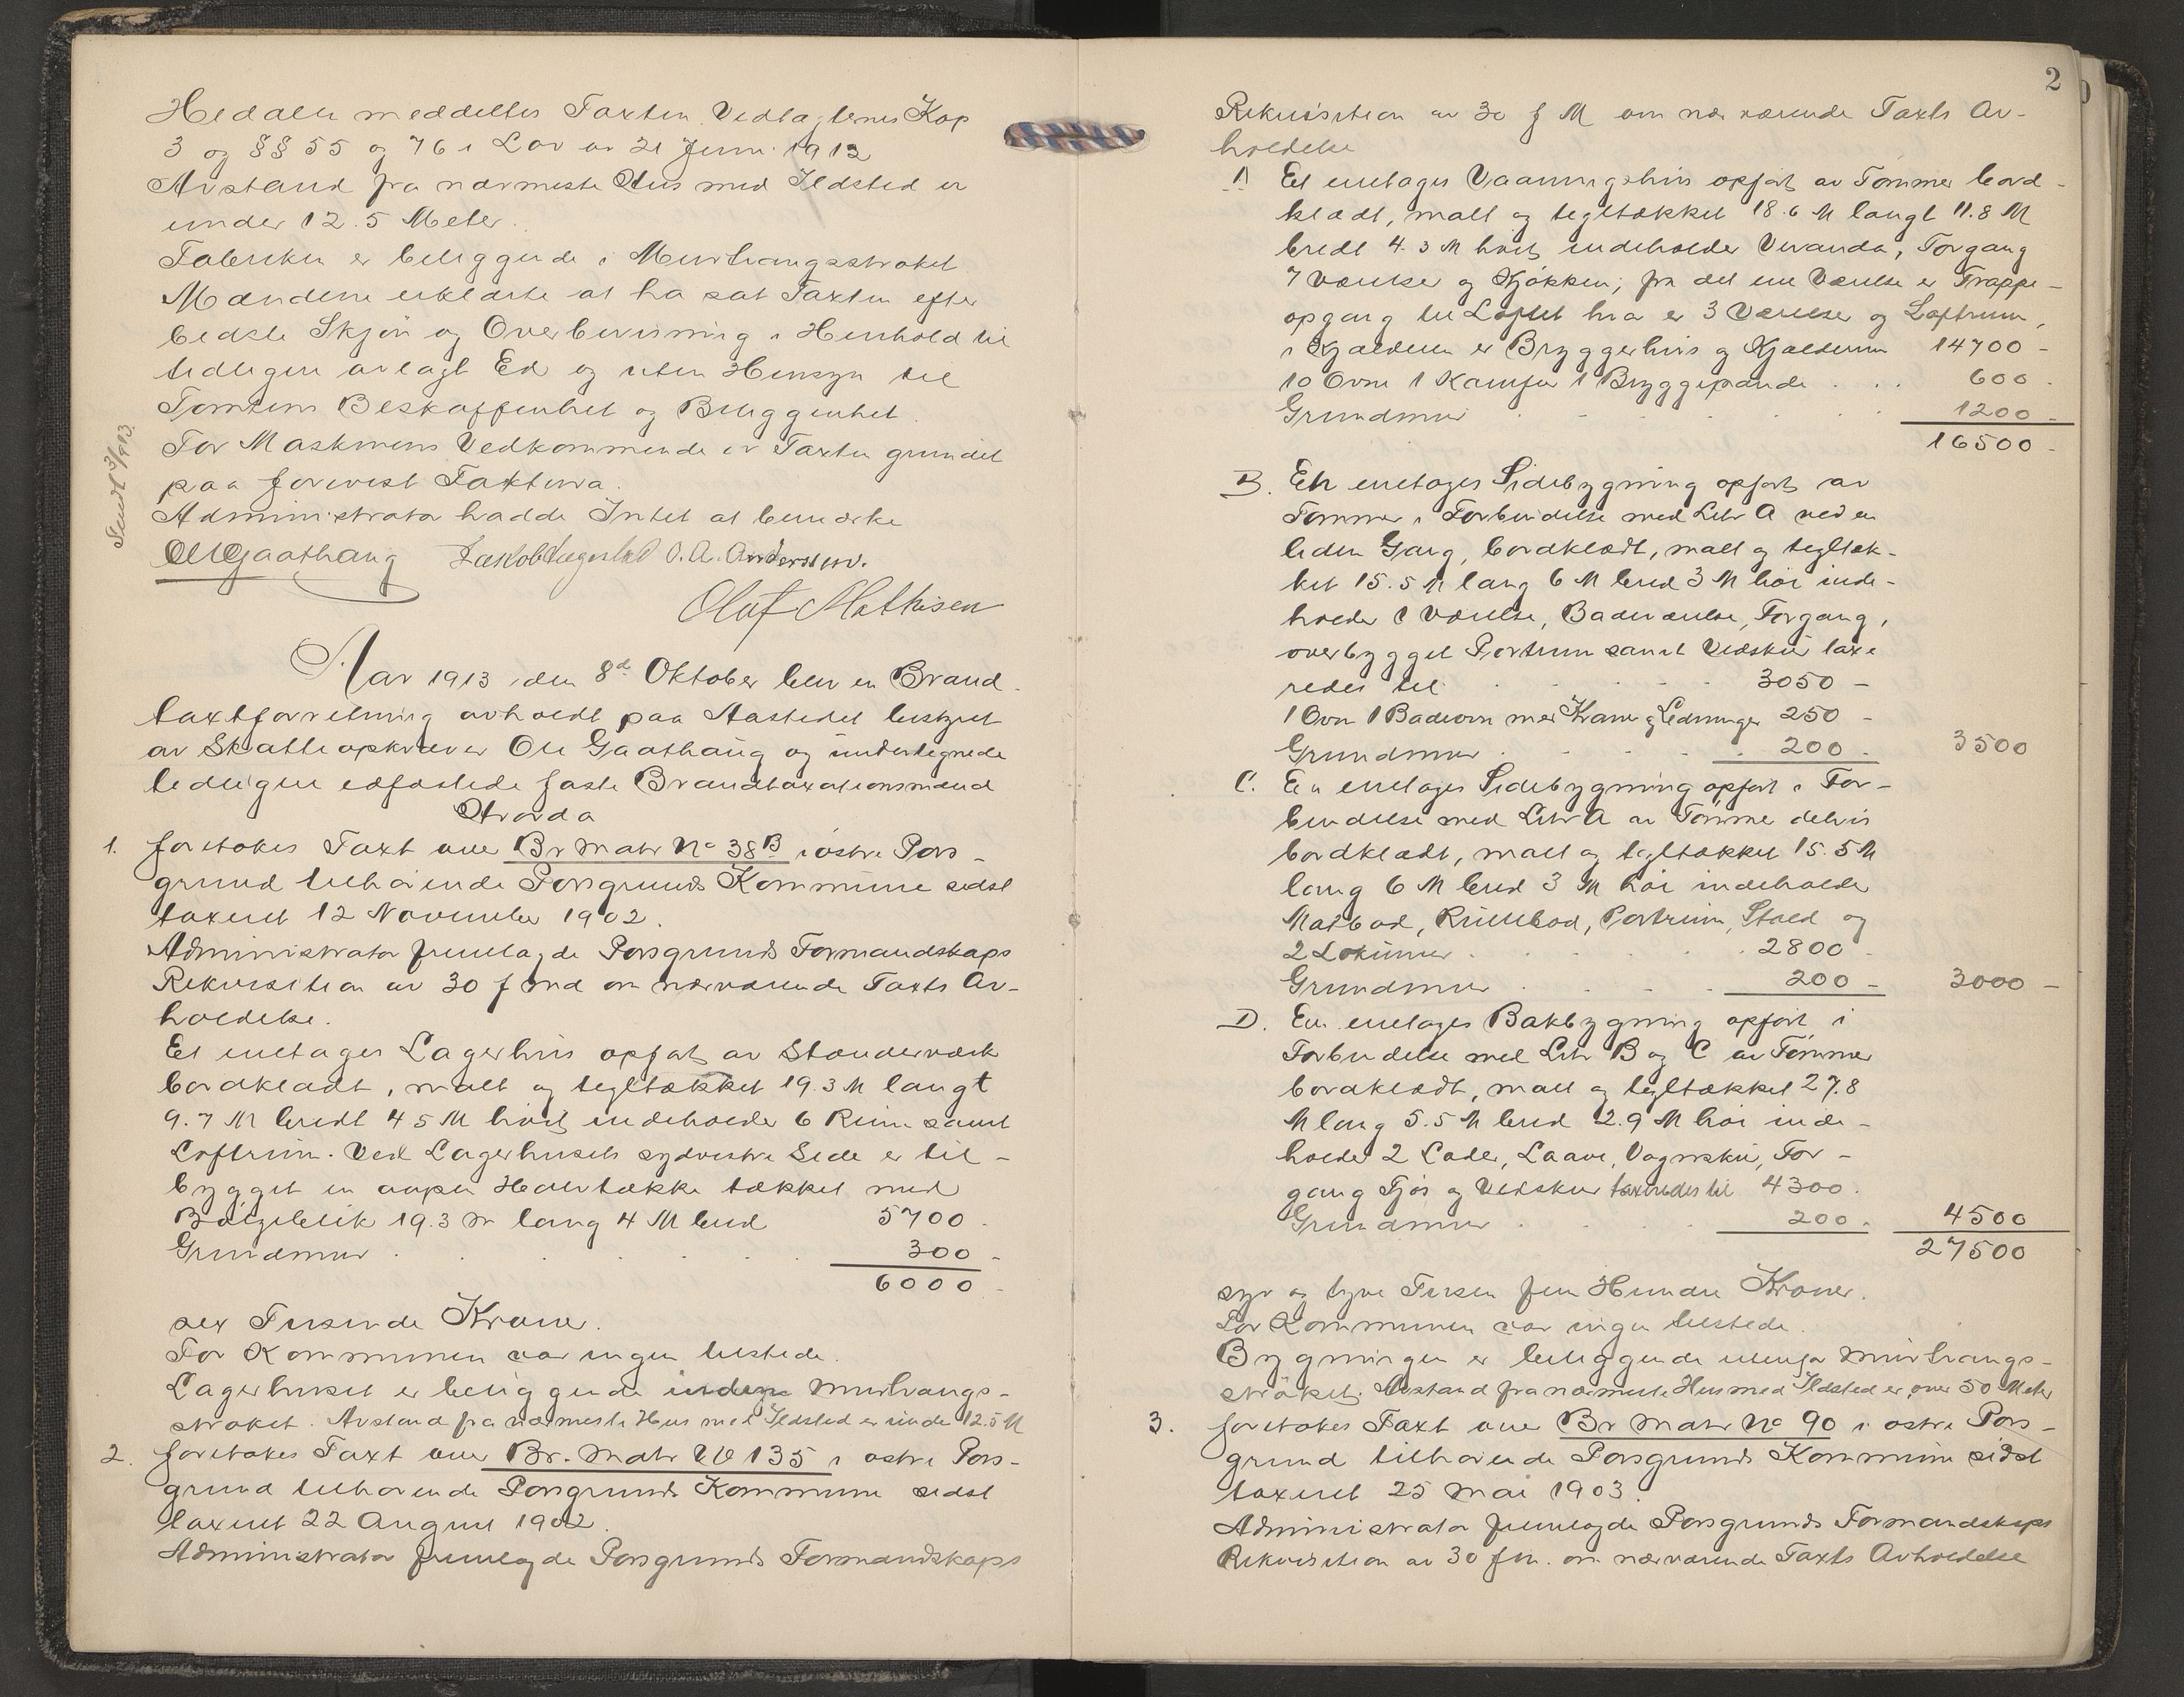 Hedalen meddeltes Taxten Vedtagternes Kap
3 og §§ 55 og 76 i Lov av 21 Juni 1912
Avstand fra nærmeste Hus med Ildsted er
under 12.5 Meter.
Fabriken er beliggende i Murtvangsstrøket
Mændene erklærte at ha sat Taxten efter
bedste Skjøn og Overbevisning i Henhold til
tidligere avlagt Ed og uten Hensyn til
Tomtens Beskaffenhet og Beliggenhet.
For Maskinens Vedkommende er Taxten grundet
paa forevist Faktura.
Administrator hadde Intet at bemærke
Ole Gaathaug O. A. Anderssen.
Olaf Mathisen
Sendt 1913
Aar 1913 den 8d Oktober blev en Brand
taxtforretning avholdt paa Aastedet bestyret
av Skatteopkræver Ole Gaathaug og undertegnede
tidligere edfæstede faste Brandtaxationsmænd
Hvorda
1. foretokes Taxt over Br Matr No 38B i østre Pors-
grund tilhørende Porsgrunds Kommune sidst
taxeret 12 November 1902.
Administrator fremlagde Porsgrunds Formandskaps
Rekvisition av 30 f Md om nærværende Taxts Av-
holdelse.
Et enetages Lagerhus opført av Stænderværk
bordklædt, malt og tegltækket 19.3 M langt
9.7 M bredt 4 5 M høit indeholder 6 Rum samt
Loftrum. Ved Lagerhusets sydvestre Side er til-
bygget en aapen Halvtække tækket med
Bølgeblik 19.3 M lang 4 M bred 5700.
Grundmur 300 -
6000 -
sex Tusinde Kroner.
For Kommunen var ingen tilstede.
Lagerhuset er beliggende indenfor Murtvangs-
strøket. Avstand fra nærmeste Hus med Ildsted er under 12.5 M
2. foretokes Taxt over Br. Matr No 135 i østre Pors-
grund tilhørende Porsgrunds Kommune sidst
taxeret 22 August 1902.
Administrator fremlagde Porsgrunds Formandskaps
2
Rekvisition av 30 f M om nærværende Taxts Av-
holdelse
A Et enetages Vaaningshus opført av Tømmer bord-
klædt, malt og tegltækket 18.6 M langt 11.8 M
bredt 4.3 M høit indeholder Veranda, Forgang
7 Værelser og Kjøkken; fra det ene Værelse er Trappe-
opgang til Loftet hvor er 3 Værelser og Loftrum,
i Kjælderen er Bryggerhus og Kjælderrum 14700 -
10 Ovne 1 Komfur 1 Bryggepande . . . 600.
Grundmur 1200 -
16500 -
B. En enetages Sidebygning opført av
Tømmer i Forbindelse med Litr A ved en
liden Gang, bordklædt, malt og tegltæk-
ket 15.5 M lang 6 M bred 3 M høi inde-
holder 1 Værelse, Badeværelse, Forgang,
overbygget Portrum samt Vedskur taxe
redes til 3050 -
1 Ovn 1 Badeovn med Kraner og Ledninger 250 -
Grundmur 200. 3500
C. En enetages Sidebygning opført i For-
bindelse med Litr A av Tømmer delvis
bordklædt, malt og tegltækket 15.5 M
lang 6 M bred 3 M høi indeholder
Matbod, Rullebod, Portrum, Stald og
2 Lokummer 2800.
Grundmur 200 - 3000 -
D. En enetages Bakbygning opført i
Forbindelse med Litr B og C av Tømmer
bordklædt, malt og tegltækket 27.8
M lang 5.5 M bred 2.9 M høi inde-
holder 2 Lader, Laave, Vognskur, For-
gang Fjøs og Vedskur taxeredes til 4300.
Grundmur 200. 4500
27500
syv og tyve Tusen fem Hundre Kroner.
For Kommunen var ingen tilstede.
Bygningen er beliggende utenfor Murtvangs-
strøket. Avstand fra nærmeste Hus med Ildsted er over 50 Meter
3. foretokes Taxt over Br Matr No 90 i østre Pors-
grund tilhørende Porsgrunds Kommune sidst
taxeret 25 Mai 1903.
Administrator fremlagde Porsgrunds Formandskaps
Rekvisition av 30 f M. om nærværende Taxts Avholdelse